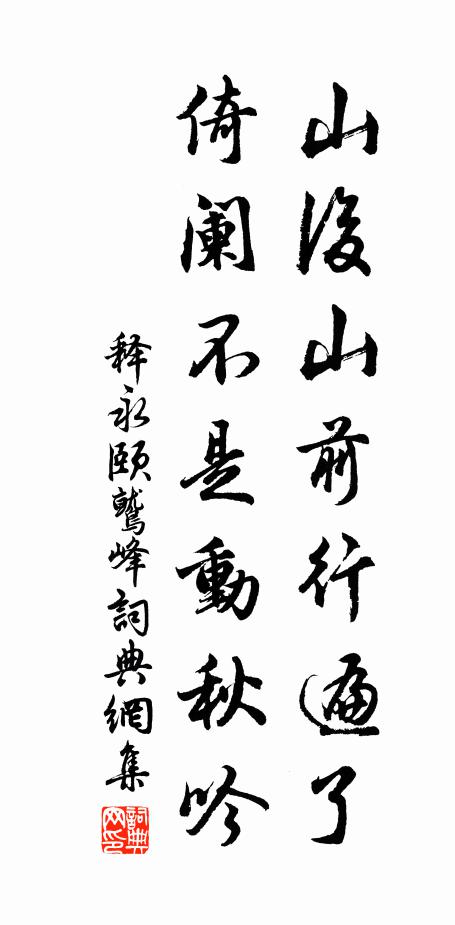 山後山前行遍了
倚阑不是動秋吟
释永颐鷲峰詞典網集
詞典网印